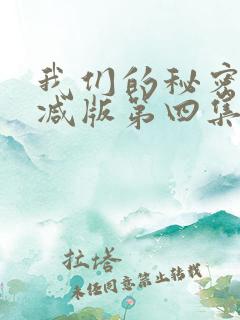 我们的秘密
减版第四集
拉塔
未经同意禁止转载